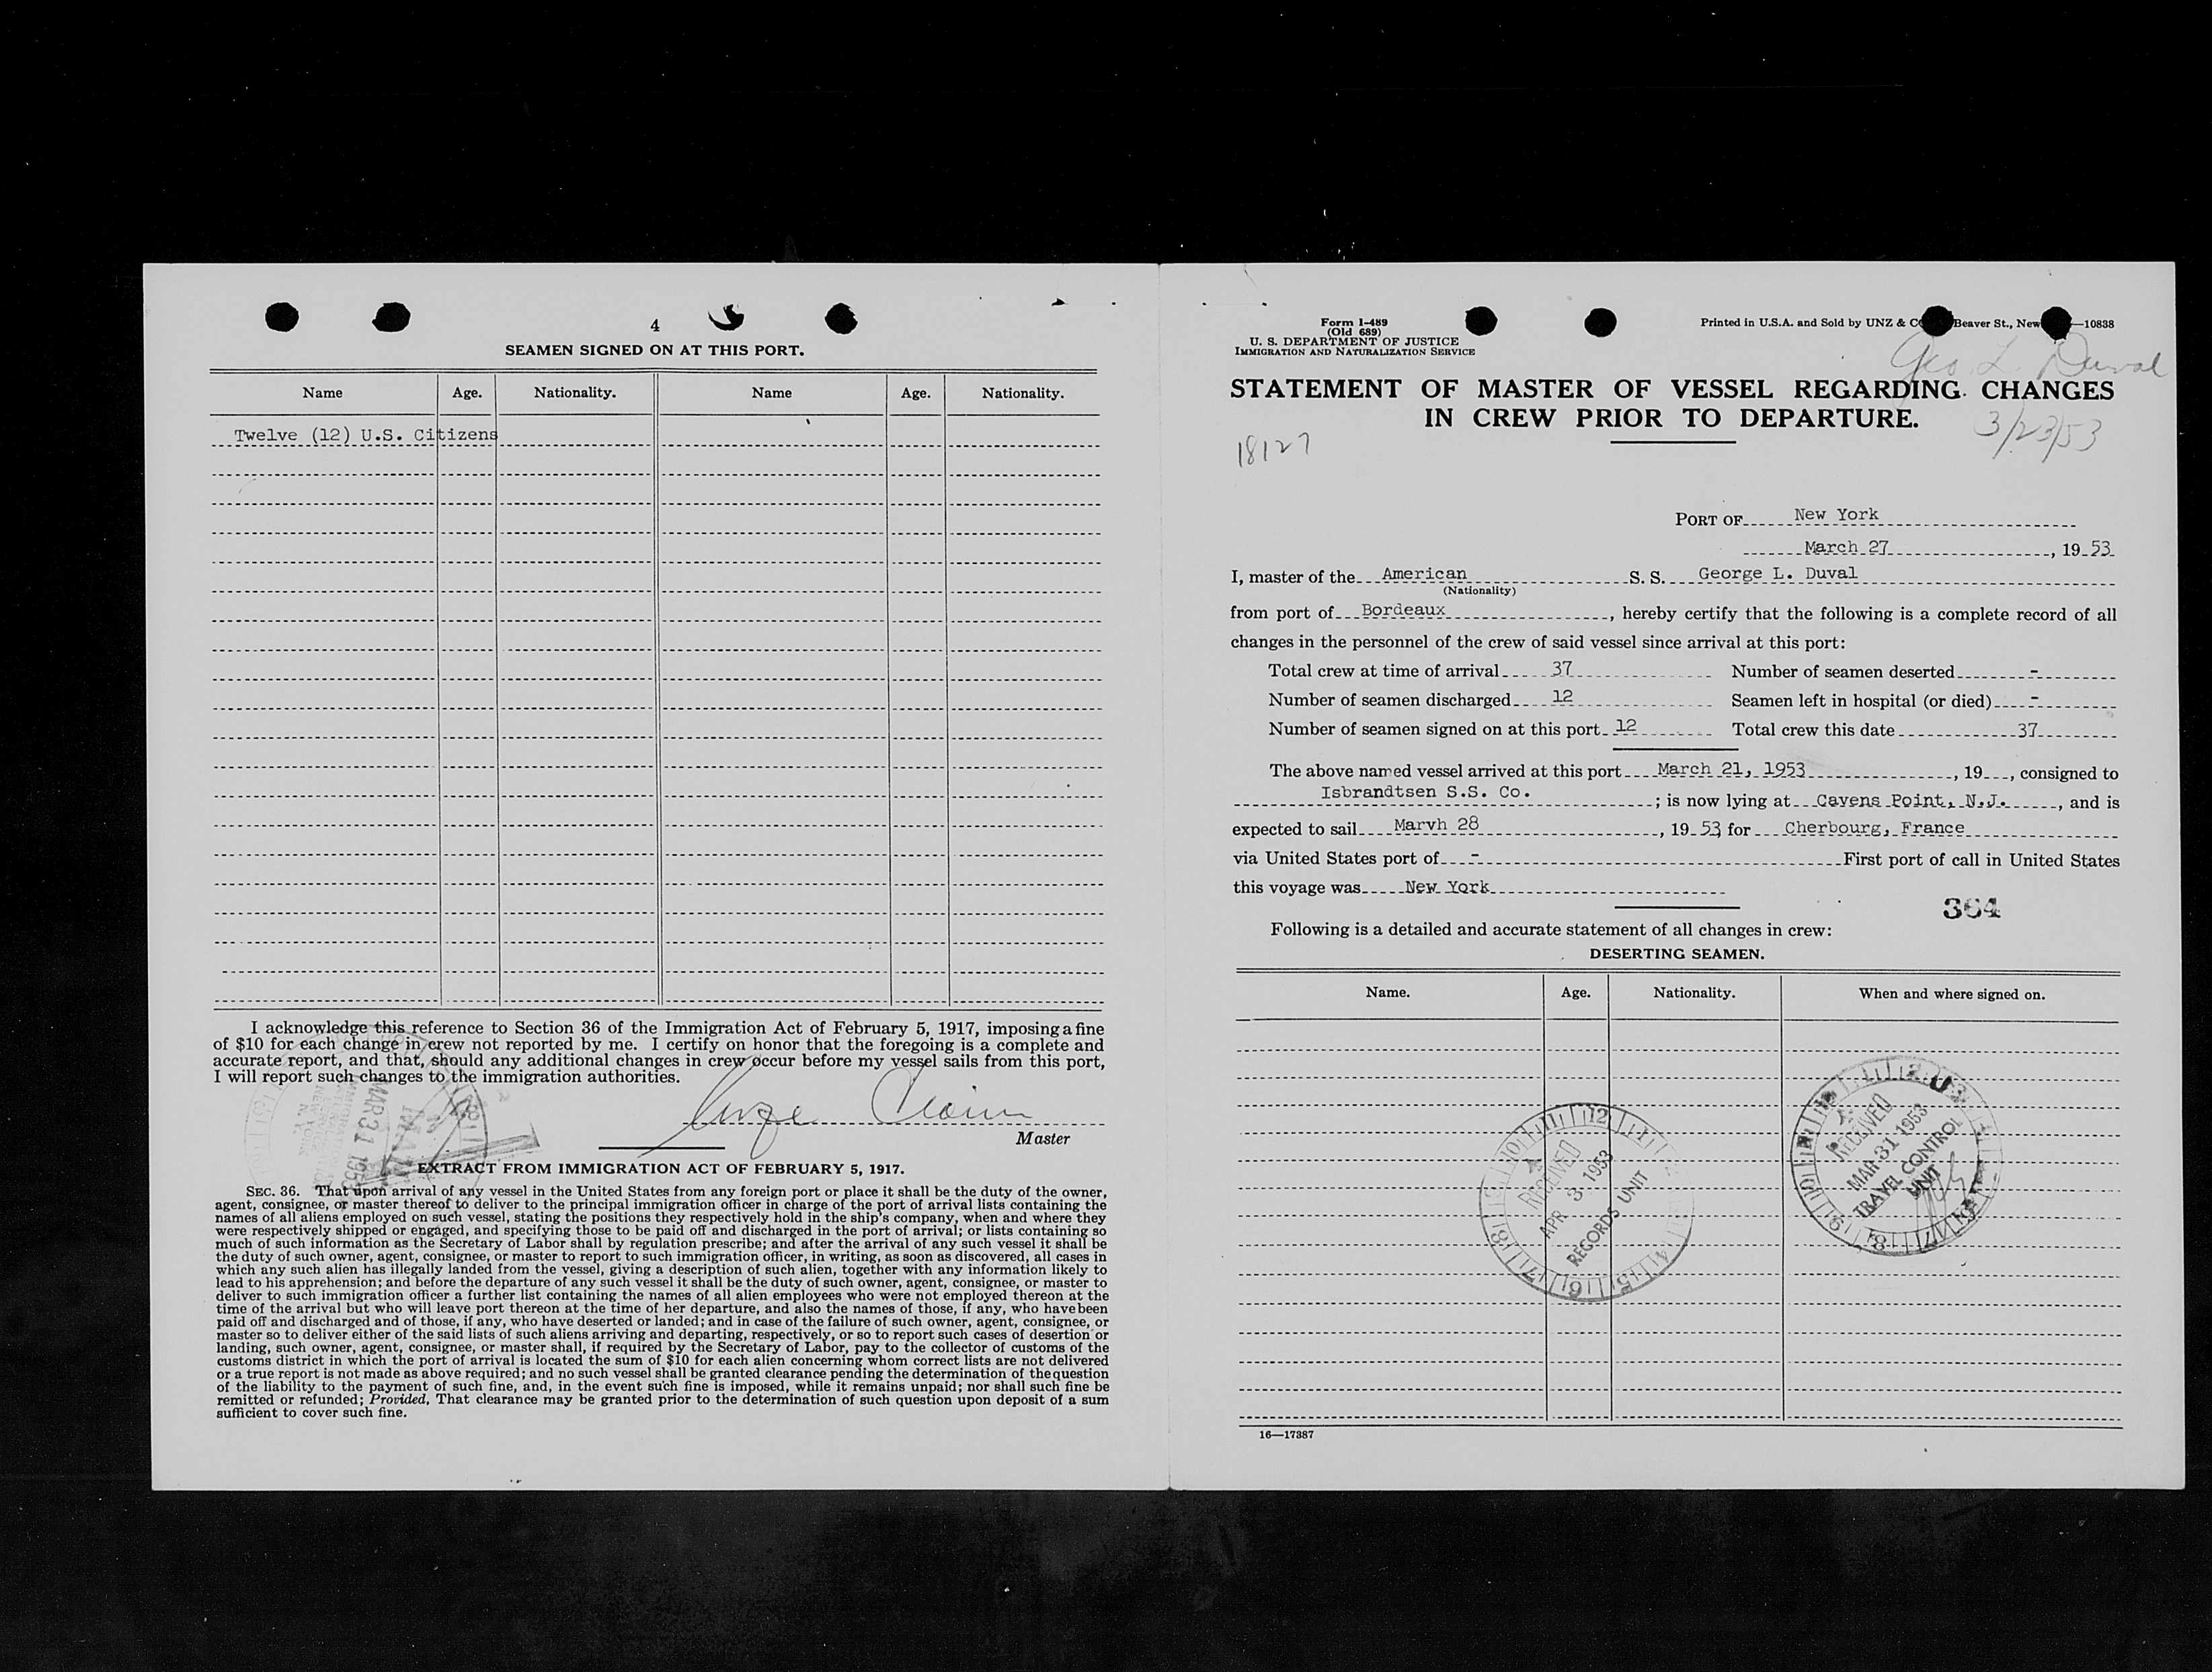 4
SEAMEN SIGNED ON AT THIS PORT.
Name Age. Nationality. Name Age. Nationality.
Twelve (12) U.S. Citizens
I acknowledge this reference to Section 36 of the Immigration Act of February 5, 1917, imposing a fine
of $10 for each change in crew not reported by me. I certify on honor that the foregoing is a complete and
accurate report, and that, should any additional changes in crew occur before my vessel sails from this port,
I will report such changes to the immigration authorities.
MAR 31 1953
Master
EXTRACT FROM IMMIGRATION ACT OF FEBRUARY 5, 1917.
SEC. 36. That upon arrival of any vessel in the United States from any foreign port or place it shall be the duty of the owner,
agent, consignee, or master thereof to deliver to the principal immigration officer in charge of the port of arrival lists containing the
names of all aliens employed on such vessel, stating the positions they respectively hold in the ship's company, when and where they
were respectively shipped or engaged, and specifying those to be paid off and discharged in the port of arrival; or lists containing so
much of such information as the Secretary of Labor shall by regulation prescribe; and after the arrival of any such vessel it shall be
the duty of such owner, agent, consignee, or master to report to such immigration officer, in writing, as soon as discovered, all cases in
which any such alien has illegally landed from the vessel, giving a description of such alien, together with any information likely to
lead to his apprehension; and before the departure of any such vessel it shall be the duty of such owner, agent, consignee, or master to
deliver to such immigration officer a further list containing the names of all alien employees who were not employed thereon at the
time of the arrival but who will leave port thereon at the time of her departure, and also the names of those, if any, who have been
paid off and discharged and of those, if any, who have deserted or landed; and in case of the failure of such owner, agent, consignee, or
master so to deliver either of the said lists of such aliens arriving and departing, respectively, or so to report such cases of desertion or
landing, such owner, agent, consignee, or master shall, if required by the Secretary of Labor, pay to the collector of customs of the
customs district in which the port of arrival is located the sum of $10 for each alien concerning whom correct lists are not delivered
or a true report is not made as above required; and no such vessel shall be granted clearance pending the determination of the question
of the liability to the payment of such fine, and, in the event such fine is imposed, while it remains unpaid; nor shall such fine be
remitted or refunded; Provided, That clearance may be granted prior to the determination of such question upon deposit of a sum
sufficient to cover such fine.
Form I-489
(Old 689)
U. S. DEPARTMENT OF JUSTICE
IMMIGRATION AND NATURALIZATION SERVICE
Printed in U.S.A. and Sold by UNZ & Beaver St., New —10838
Geo. L. Duval
STATEMENT OF MASTER OF VESSEL REGARDING CHANGES
IN CREW PRIOR TO DEPARTURE.
3/23/53
18127
PORT OF New York
March 27, 1953
I, master of the American S. S. George L. Duval
(Nationality)
from port of Bordeaux, hereby certify that the following is a complete record of all
changes in the personnel of the crew of said vessel since arrival at this port:
Total crew at time of arrival 37 Number of seamen deserted -
Number of seamen discharged 12 Seamen left in hospital (or died) -
Number of seamen signed on at this port 12 Total crew this date 37
The above named vessel arrived at this port March 21, 1953, 19, consigned to
Isbrandtsen S.S. Co.; is now lying at Cavens Point, N.J., and is
expected to sail Marvh 28, 1953 for Cherbourg, France
via United States port of - First port of call in United States
this voyage was New York
364
Following is a detailed and accurate statement of all changes in crew:
DESERTING SEAMEN.
Name. Age. Nationality. When and where signed on.
RECEIVED
APR 3 1953
RECORDS UNIT
RECEIVED
MAR 31 1953
TRAVEL CONTROL
UNIT
16—17387